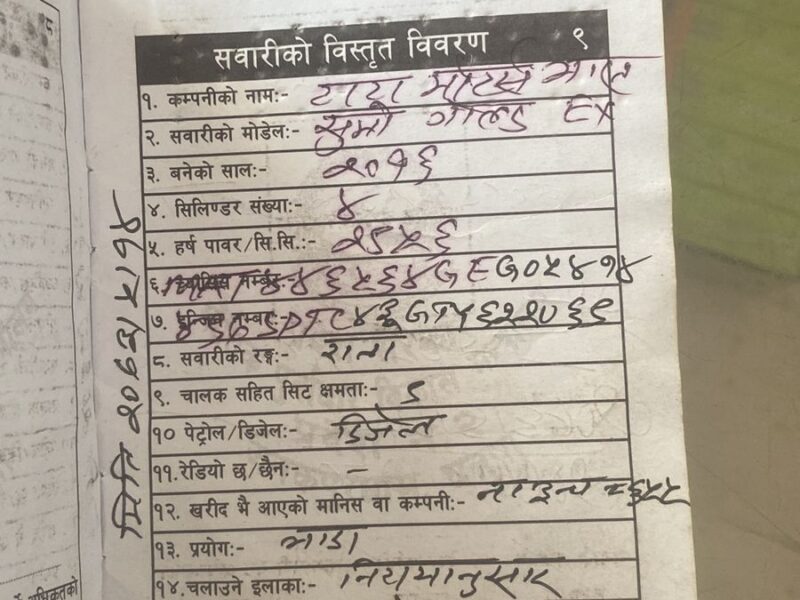 सवारीको विस्तृत विवरण ९
१. कम्पनीको नाम:- टाटा मोटर्स भारत
२. सवारीको मोडेल:- सुमो गोल्ड EX
३. बनेको साल:- २०१६
४. सिलिण्डर संख्या:- ४
५. हर्ष पावर/सि.सि.:- २९५६
६. च्यासिस नम्बर:-
७. इन्जिन नम्बर:-
८. सवारीको रङ्ग:- रातो
९. चालक सहित सिट क्षमता:- ९
१० पेट्रोल/डिजेल:- डिजेल
११.रेडियो छ/छैन:- –
१२. खरीद भै आएको मानिस वा कम्पनी:-
१३. प्रयोग:- भाडा
१४.चलाउने इलाका:- नियमानुसार
मिति